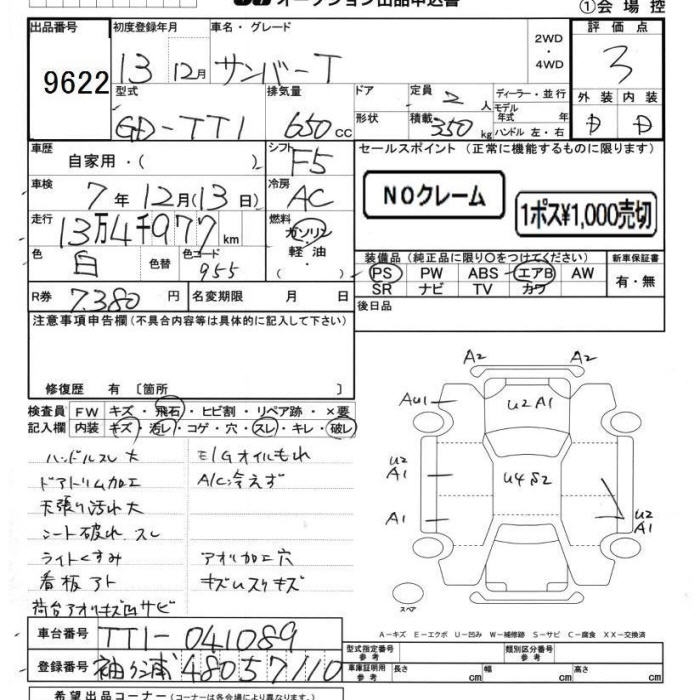 オークション出品申込書
①会場控
出品番号 初度登録年月 車名・グレード 2WD ・ 4WD 評価点
9622 13 12月 サンバーT 3
型式 排気量 ドア 定員 2 人 ディーラー・並行 外装 内装
GD-TT1 650 CC 形状 積載 350 kg モデル年式 年 ハンドル 左・右 D D
車歴 自家用・( ) シフト F5 セールスポイント (正常に機能するものに限ります)
車検 7年12月(13日) 冷房 AC NOクレーム 1ポス¥1,000売切
走行 13万4千977km 燃料 ガソリン・軽油・( )
色 白 色替 色コード 955
装備品 (純正品に限り○をつけてください) 新車保証書
PS PW ABS エアB AW 有・無
SR ナビ TV カワ
R券 7,380 円 名変期限 月 日 後日品
注意事項申告欄 (不具合内容等は具体的に記入して下さい)
修復歴 有 〔箇所 〕
検査員記入欄 FW キズ・飛石・ヒビ割・リペア跡・×要
内装 キズ・汚レ・コゲ・穴・スレ・キレ・破レ
ハンドルスレ大 E/Gオイルもれ
ドアトリム加工 A/C冷えず
天張り汚れ大
シート破れ スレ
ライトくすみ アオリ加工穴
看板アト キズムスリキズ
荷台アオリキズ凹サビ
A2 A2
AU1 U2A1
U2 A1 U4S2
A1 U2 A1
スペア
A-キズ E-エクボ U-凹み W-補修跡 S-サビ C-腐食 XX-交換済
車台番号 TT1-041089 型式指定番号 参考 類別区分番号 参考
登録番号 袖ヶ浦 480 57/10 車庫証明用 参考 長さ cm 幅 cm 高さ cm
希望出品コーナー (コーナーは各会場により異なります)